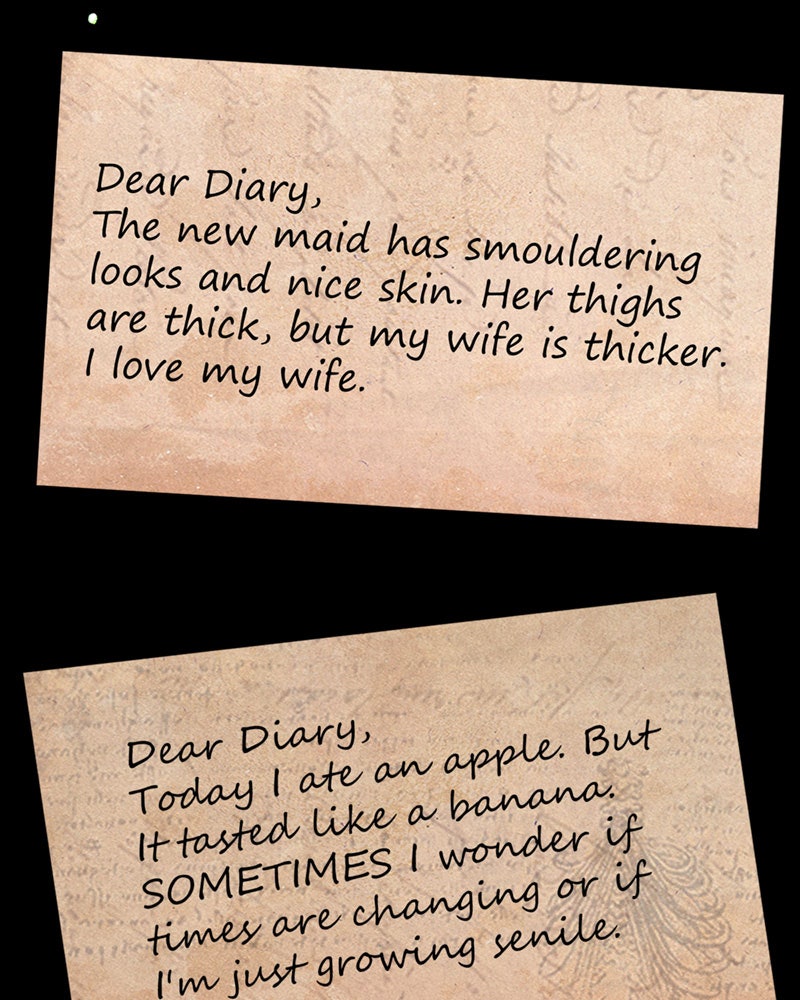 Dear Diary,
The new maid has smouldering
looks and nice skin. Her thighs
are thick, but my wife is thicker.
I love my wife.
Dear Diary,
Today I ate an apple. But
It tasted like a banana.
SOMETIMES I wonder if
times are changing or if
I'm just growing senile.